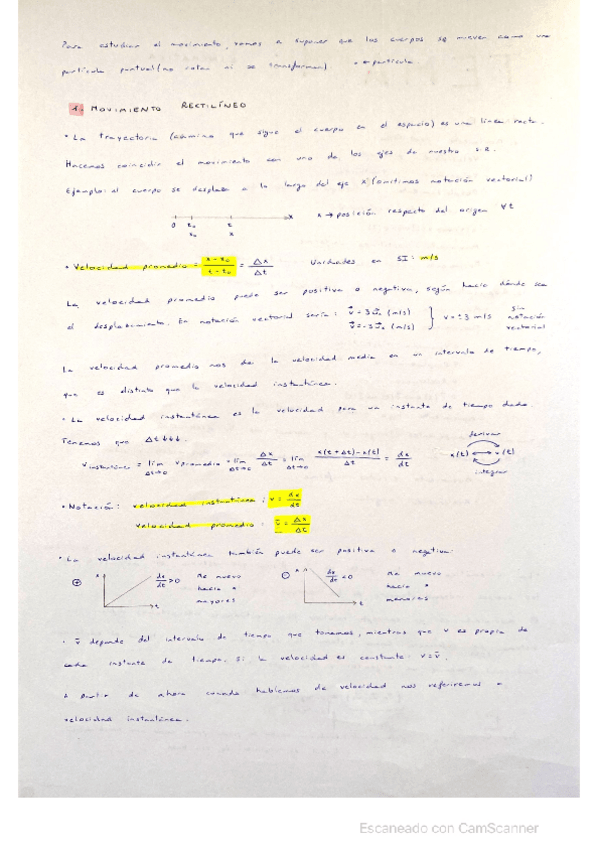 Para estudiar el movimiento, vamos a suponer que los cuerpos se mueven como una
partícula puntual (no rotan ni se transforman). • ← partícula
1. MOVIMIENTO RECTILÍNEO
• La trayectoria (camino que sigue el cuerpo en el espacio) es una línea recta.
Hacemos coincidir el movimiento con uno de los ejes de nuestro S.R.
Ejemplo: el cuerpo se desplaza a lo largo del eje x (omitimos notación vectorial)
0 t₀ t x x → posición respecto del origen ∀t
x₀ x
• Velocidad promedio = x - x₀ / t - t₀ = Δx / Δt Unidades en SI: m/s
La velocidad promedio puede ser positiva o negativa, según hacia dónde sea
el desplazamiento. En notación vectorial sería: v⃗ = 3 u⃗ₓ (m/s) } v = ±3 m/s sin notación vectorial
v⃗ = -3 u⃗ₓ (m/s)
La velocidad promedio nos da la velocidad media en un intervalo de tiempo,
que es distinto que la velocidad instantánea.
• La velocidad instantánea es la velocidad para un instante de tiempo dado.
Tenemos que Δt ↓↓↓. derivar
v instantánea = lím Δt→0 v promedio = lím Δt→0 Δx / Δt = lím Δt→0 x(t + Δt) - x(t) / Δt = dx / dt x(t) ⟷ v(t)
integrar
• Notación: velocidad instantánea: v = dx / dt
velocidad promedio: v̄ = Δx / Δt
• La velocidad instantánea también puede ser positiva o negativa:
⊕ x t dx / dt > 0 Me muevo hacia x mayores ⊖ x t dx / dt < 0 Me muevo hacia x menores
• v̄ depende del intervalo de tiempo que tomemos, mientras que v es propia de
cada instante de tiempo. Si la velocidad es constante: v = v̄.
A partir de ahora cuando hablemos de velocidad nos referiremos a
velocidad instantánea.
Escaneado con CamScanner